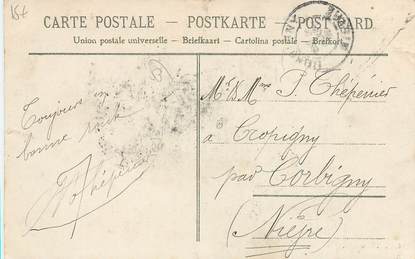 15€
CARTE POSTALE - POSTKARTE - POST CARD
Union postale universelle - Briefkaart - Cartolina postale - Brefkort
Toujours en
bonne santé
Mr & Mme P Thépénier
à Cropigny
par Corbigny
(Nièvre)